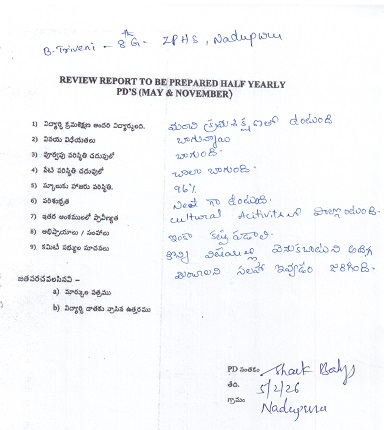 B. Triveni - 8th G - ZPHS, Nadupuru
REVIEW REPORT TO BE PREPARED HALF YEARLY
PD'S (MAY & NOVEMBER)
1) విద్యార్థి క్రమశిక్షణ అందరి విద్యార్థులది. మంచి క్రమశిక్షణతో ఉంటుంది
2) వినయ విధేయతలు బాగున్నాయి
3) పూర్వపు పరిస్థితి చదువులో బాగుంది.
4) నేటి పరిస్థితి చదువులో చాలా బాగుంది.
5) స్కూలుకు హాజరు పరిస్థితి. 96%
6) పరిశుభ్రత నీట్ గా ఉంటుంది.
7) ఇతర అంశములలో ప్రావీణ్యత Cultural Activities లో పాల్గొంటుంది.
8) అభిప్రాయాలు / సలహాలు ఇంకా కష్ట పడాలి.
9) కమిటీ సభ్యుల సూచనలు కొన్ని విషయాల్లో వెనుకబాటుని
సలహా ఇవ్వడం జరిగింది.
జతపరచవలసినవి –
a) మార్కుల పత్రము
b) విద్యార్థి దాతకు వ్రాసిన ఉత్తరము
PD సంతకం
తేది. 5/2/26
గ్రామం Nadupuru